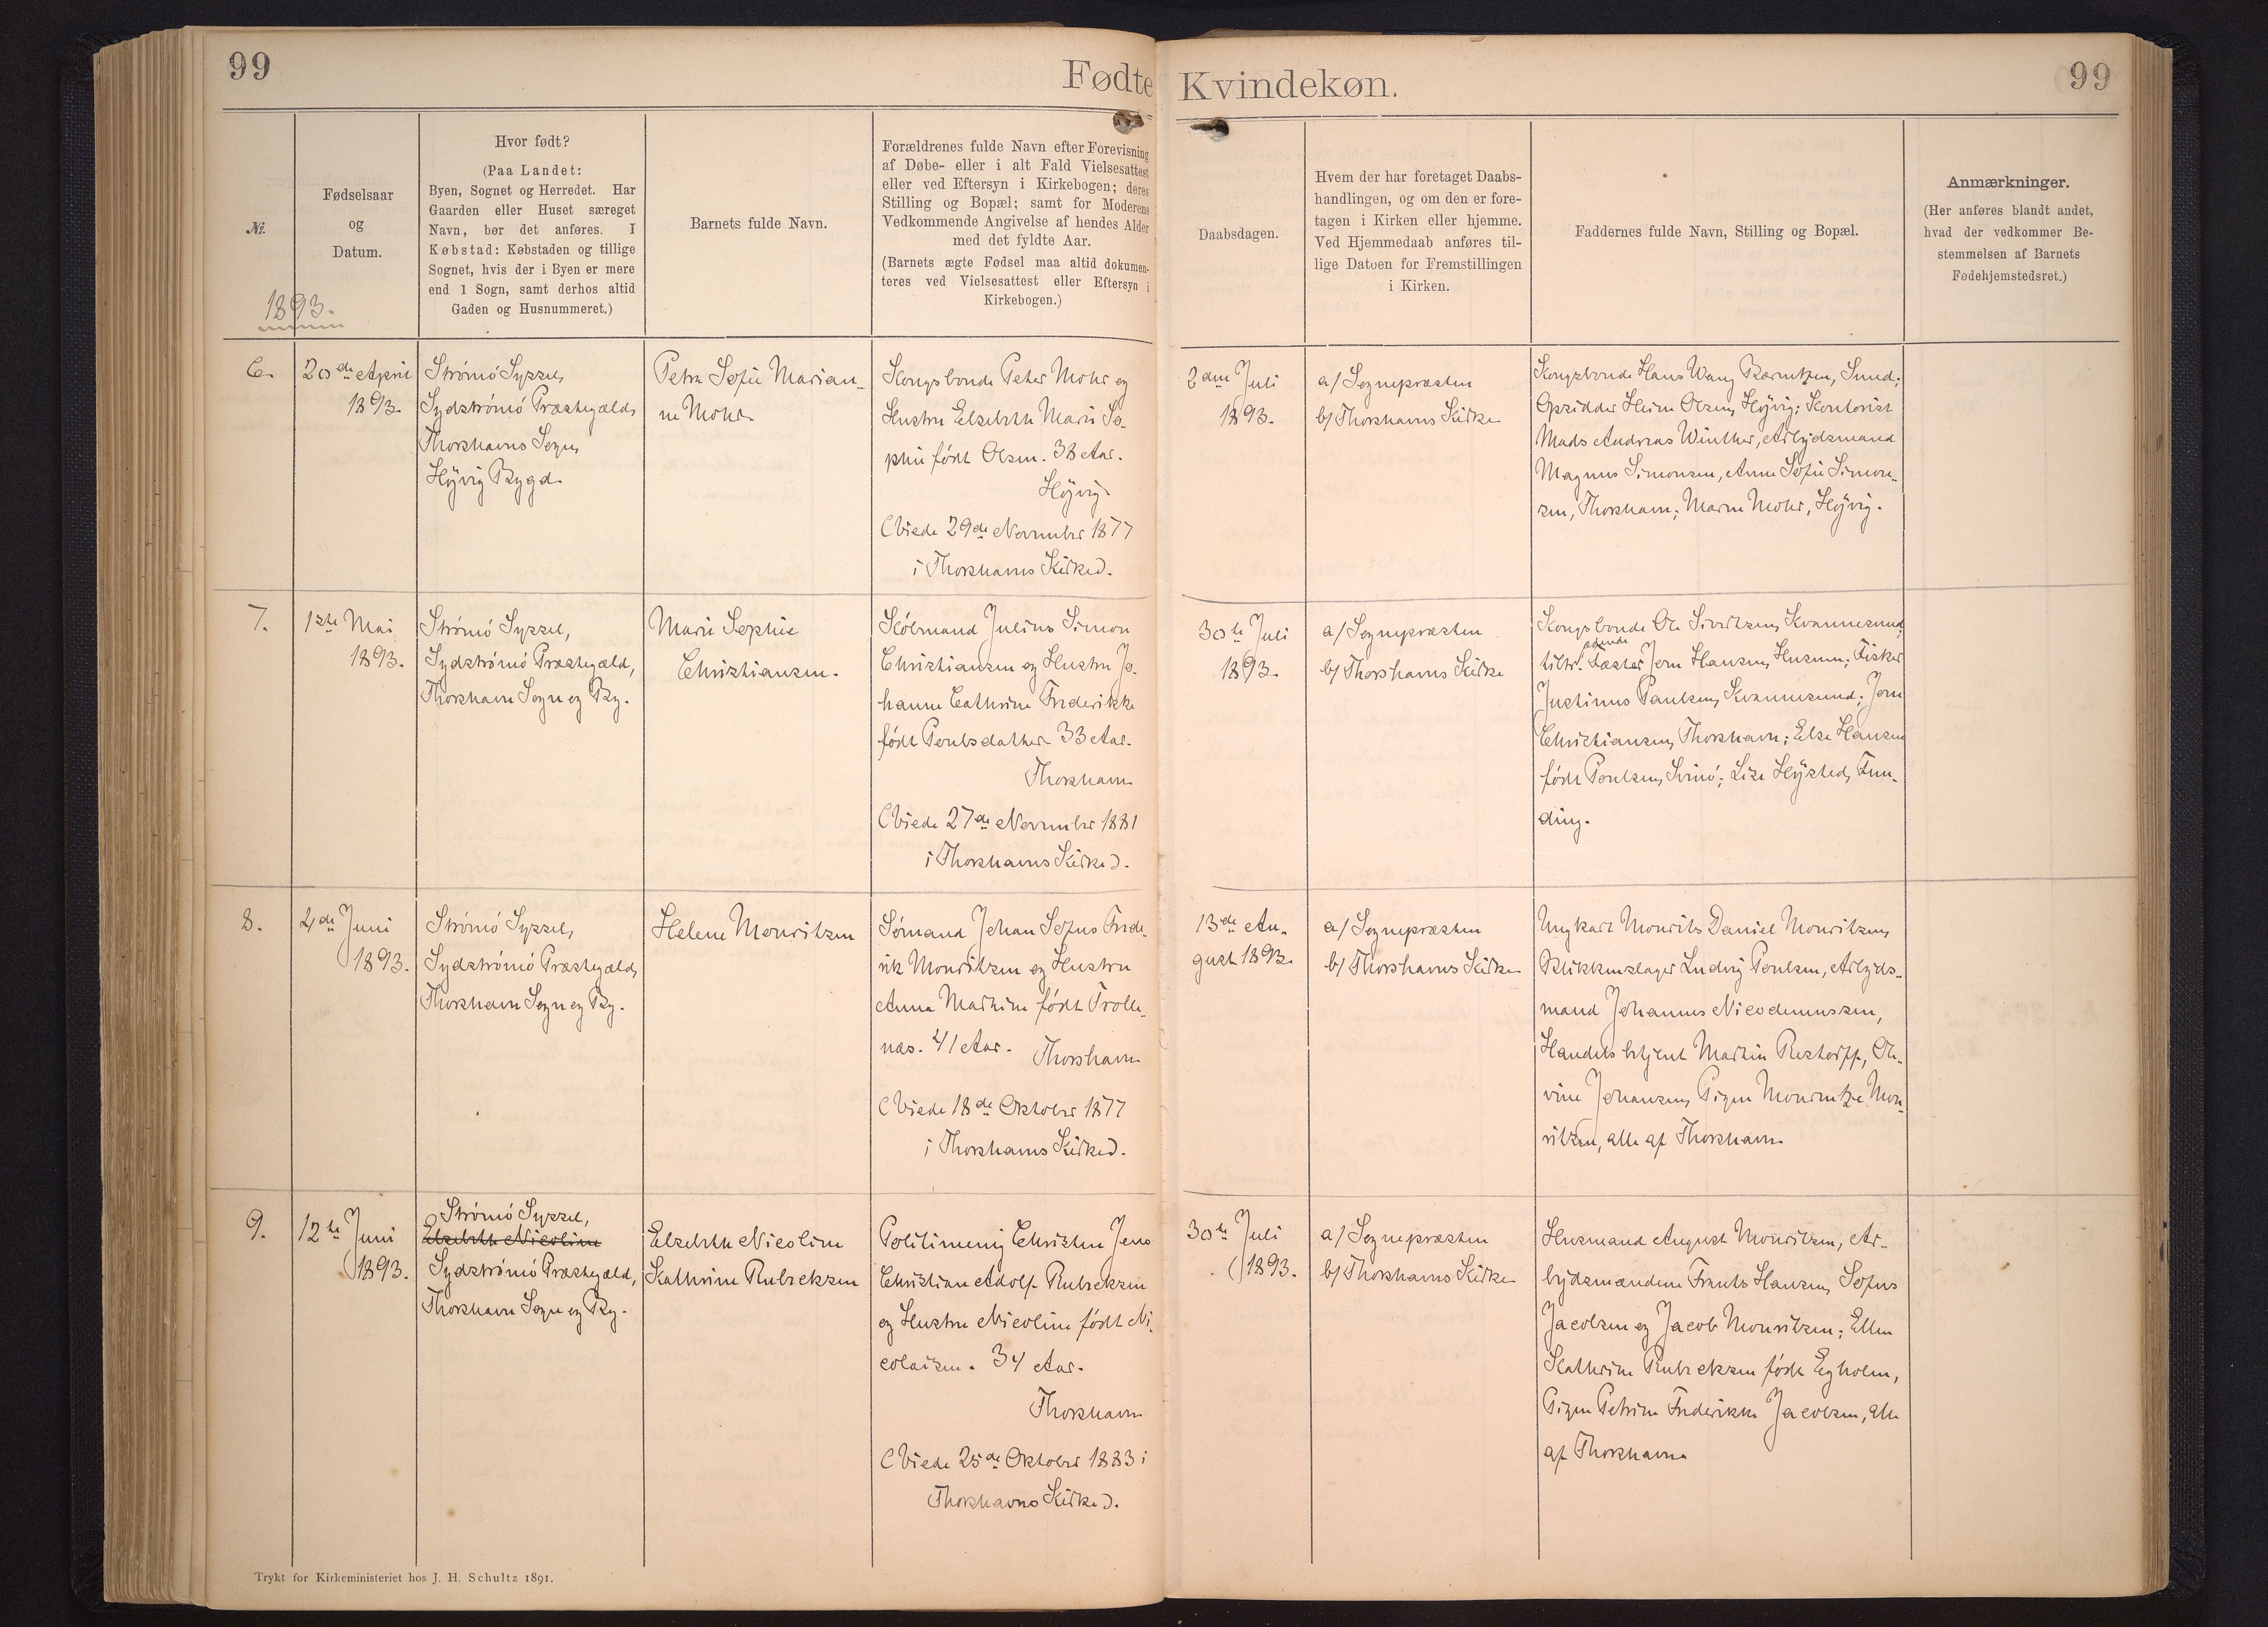 99
Fødte
Kvindekøn.
99
№.
1893.
Fødselsaar
og
Datum.
Hvor født?
(Paa Landet:
Byen, Sognet og Herredet. Har
Gaarden eller Huset særeget
Navn, bør det anføres. I
Købstad: Købstaden og tillige
Sognet, hvis der i Byen er mere
end 1 Sogn, samt derhos altid
Gaden og Husnummeret.)
Barnets fulde Navn.
Forældrenes fulde Navn efter Forevisning
af Døbe- eller i alt Fald Vielsesattest
eller ved Eftersyn i Kirkebogen; deres
Stilling og Bopæl; samt for Moderens
Vedkommende Angivelse af hendes Alder
med det fyldte Aar.
(Barnets ægte Fødsel maa altid dokumen-
teres ved Vielsesattest eller Eftersyn i
Kirkebogen.)
Daabsdagen.
Hvem der har foretaget Daabs-
handlingen, og om den er fore-
tagen i Kirken eller hjemme.
Ved Hjemmedaab anføres til-
lige Datoen for Fremstillingen
i Kirken.
Faddernes fulde Navn, Stilling og Bopæl.
Anmærkninger.
(Her anføres blandt andet,
hvad der vedkommer Be-
stemmelsen af Barnets
Fødehjemstedsret.)
6.
20de April
1893.
Strömö Syssel,
Sydströmö Præstegæld,
Thorshavns Sogn,
Höjvig Bygd.
Petra Sofie Marian-
ne Mohr
Kongsbonde Peter Mohr og
Hustru Elsebeth Marie So-
phie födt Olsen. 38 Aar.
Höjvig
(Viede 29de November 1877
i Thorshavns Kirke).
2den Juli
1893.
a/ Sognepræsten
b/ Thorshavns Kirke
Kongsbonde Hans Wang Bærentzen, Sund;
Opsidder Heine Olsen, Höjvig; Kontorist
Mads Andreas Winther, Arbejdsmand
Magnus Simonsen, Anne Sofie Simon-
sen, Thorshavn; Maren Mohr, Höjvig.
7.
1ste Mai
1893.
Strömö Syssel,
Sydströmö Præstegæld,
Thorshavn Sogn og By.
Marie Sophie
Christiansen.
Skólmand Julius Simon
Christiansen og Hustru Jo-
hanne Cathrine Frederikke
födt Poulsdatter 33 Aar.
Thorshavn
(Viede 27de November 1881
i Thorshavns Kirke).
30te Juli
1893.
a/ Sognepræsten
b/ Thorshavns Kirke
Kongsbonde Ole Sivertsen, Kvannesund;
tiltr. Fæster Joen Hansen, Husum; Fisker
Justinus Poulsen, Kvannesund; Joen
Christiansen, Thorshavn; Else Hansen
födt Poulsen, Svinö; Lise Höjsted, Fun-
ding.
8.
2de Juni
1893.
Strömö Syssel,
Sydströmö Præstegæld,
Thorshavn Sogn og By.
Helene Mouritzen
Sömand Johan Sofus Frede-
rik Mouritzen og Hustru
Anna Mathine födt Trolle-
næs. 41 Aar. Thorshavn
(Viede 18de Oktober 1877
i Thorshavns Kirke).
13de Au-
gust 1893.
a/ Sognepræsten
b/ Thorshavns Kirke
Ungkarl Mourits Daniel Mouritzen,
Blikkenslager Ludvig Poulsen, Arbejds-
mand Johannes Nicodemussen,
Handelsbetjent Martin Restorff, Oli-
vine Johansen, Pigen Mourentze Mou-
ritzen, alle af Thorshavn
9.
12te Juni
1893.
Strömö Syssel,
Elsebeth Nicoline
Sydströmö Præstegæld,
Thorshavn Sogn og By.
Elsebeth Nicoline
Kathrine Rubeksen
Politimenig Christen Jens
Christian Adolf Rubeksen
og Hustru Nicoline födt Ni-
colaisen. 34 Aar.
Thorshavn
(Viede 25de Oktober 1883 i
Thorshavns Kirke).
30te Juli
1893.
a/ Sognepræsten
b/ Thorshavns Kirke
Husmand August Mouritzen, Ar-
bejdsmændene Frants Hansen, Sofus
Jacobsen og Jacob Mouritzen; Ellen
Kathrine Rubeksen födt Egholm,
Pigen Petrine Frederikke Jacobsen, alle
af Thorshavn
Trykt for Kirkeministeriet hos J. H. Schultz 1891.